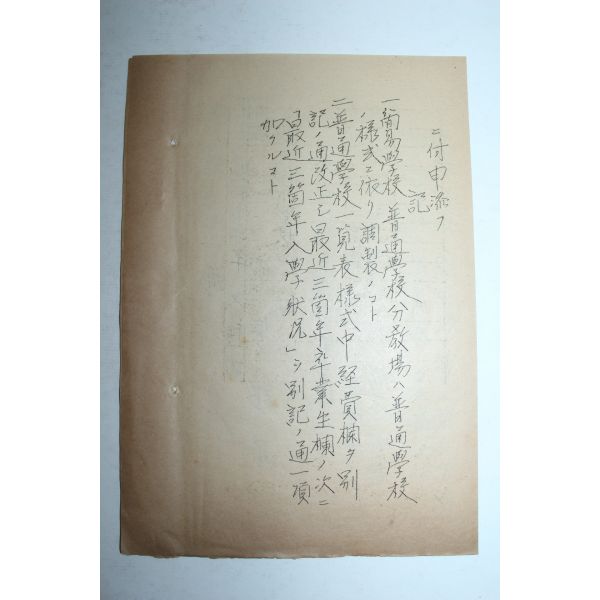 ニ付申添フ
記
一簡易學校普通學校分教場ハ普通學校
ノ様式ニ依リ調製ノコト
二普通學校一覧表様式中経費欄ヲ別
記ノ通改正シ最近三箇年卒業生欄ノ次ニ
「最近三箇年入學状況」ヲ別記ノ通一項
加フルコト